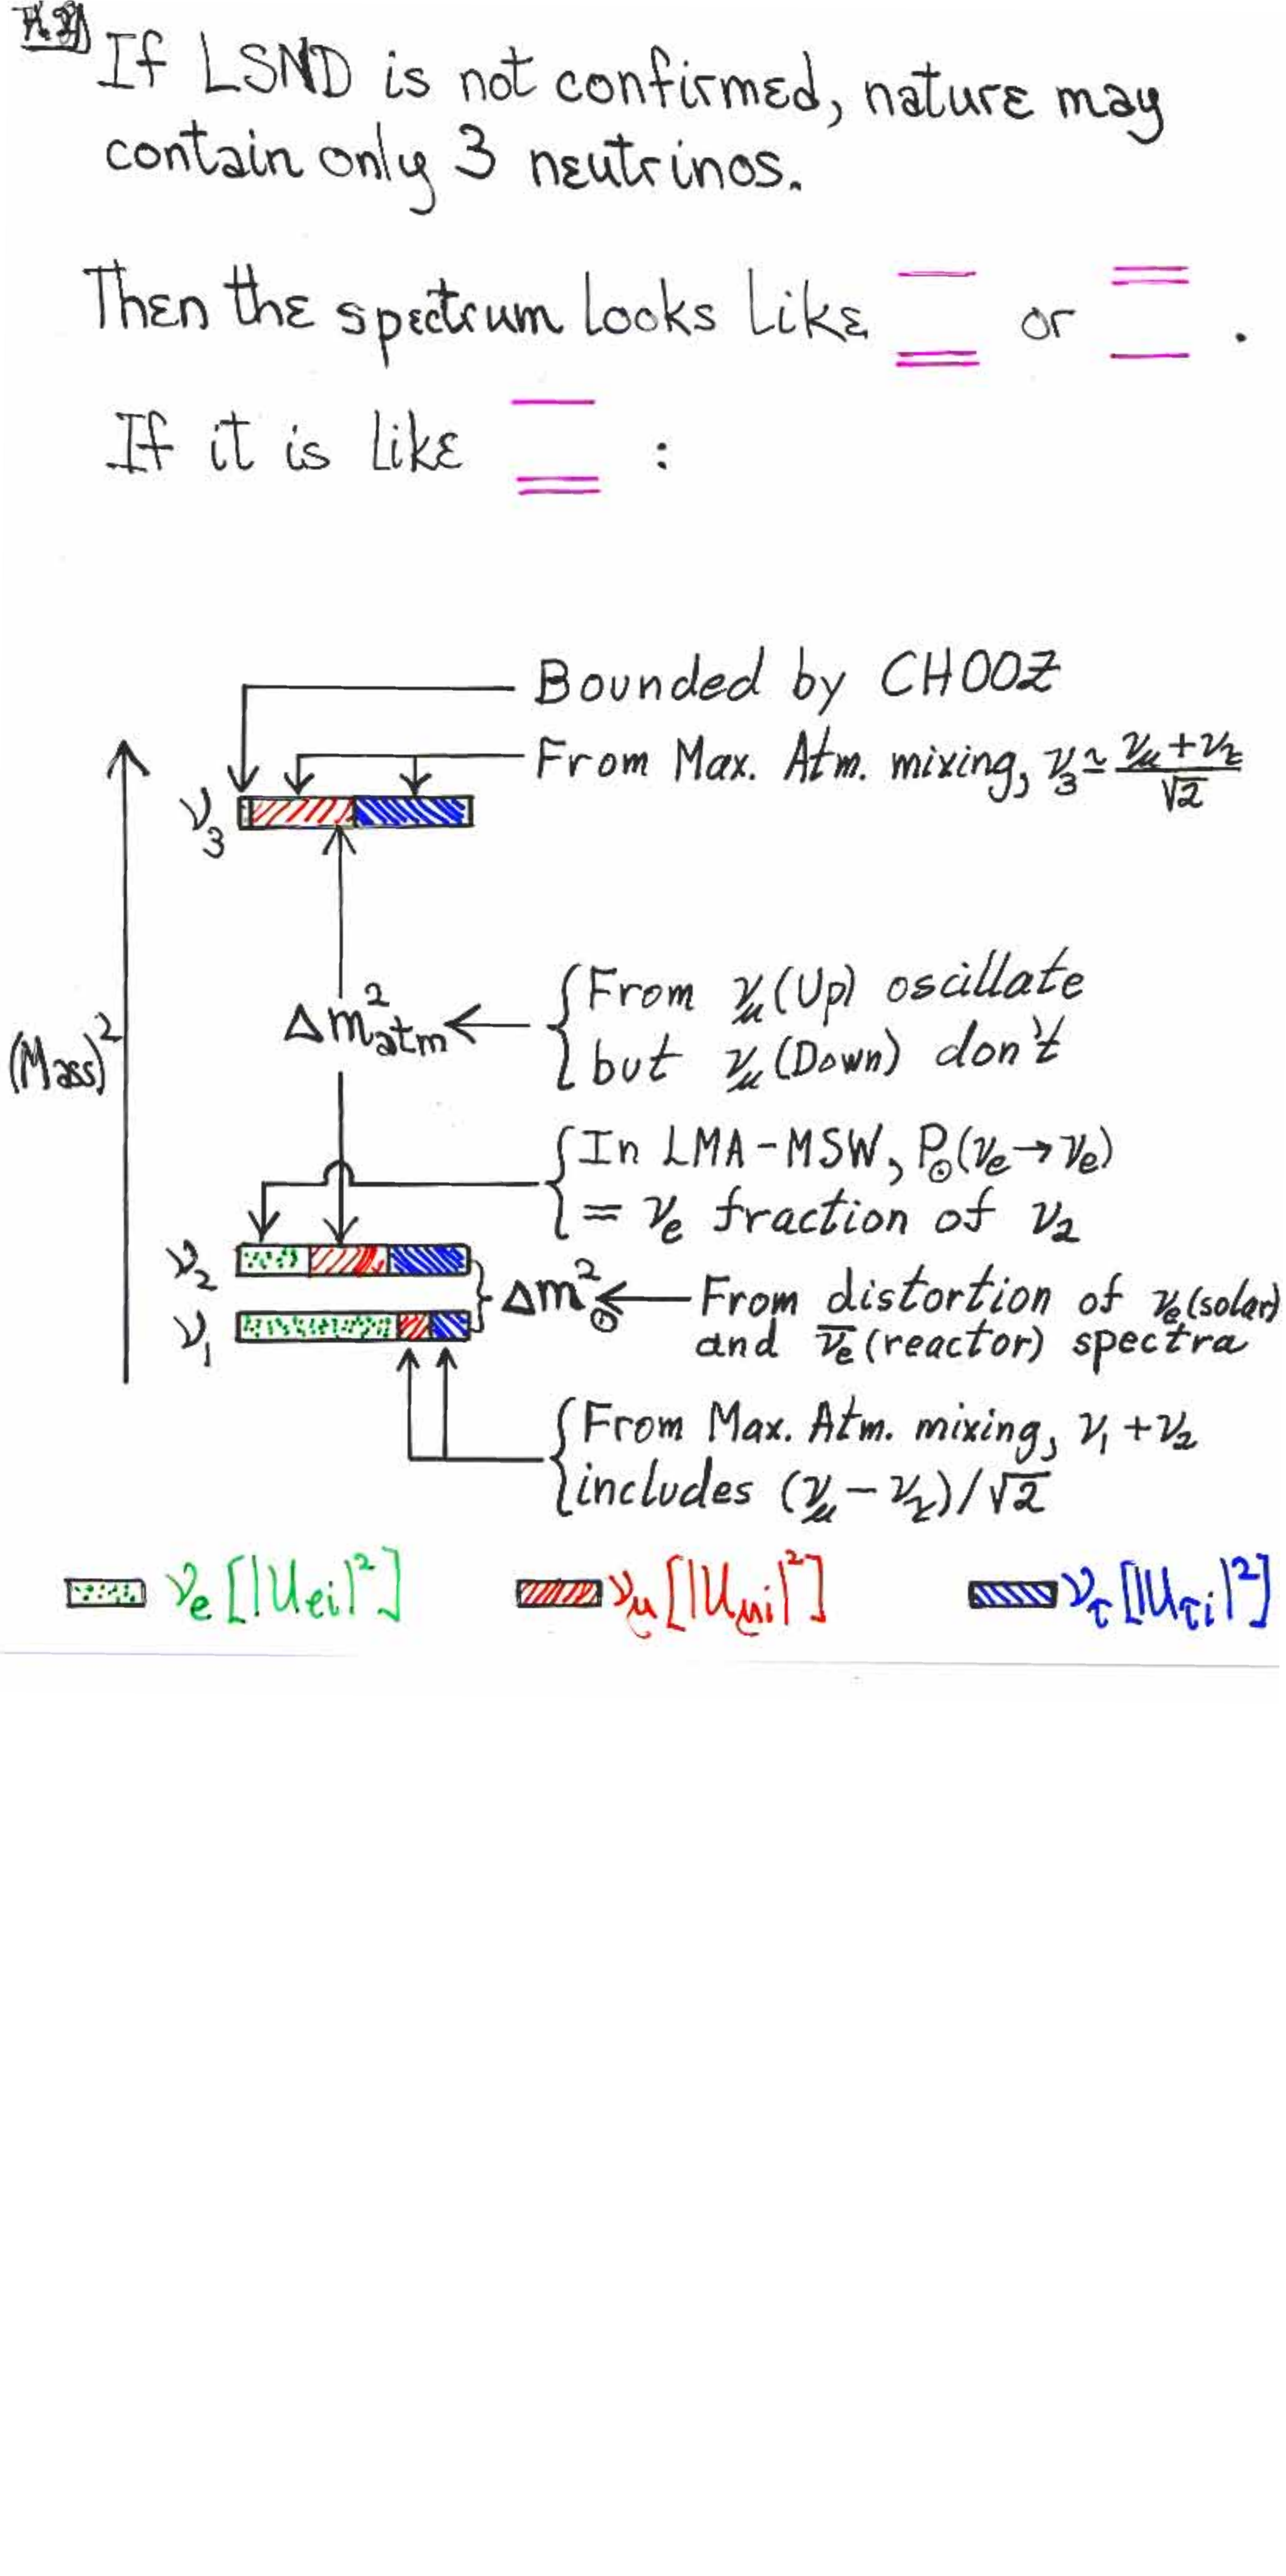 If LSND is not confirmed, nature may
contain only 3 neutrinos.
Then the spectrum looks like or .
If it is like :
Bounded by CHOOZ
From Max. Atm. mixing, ν₃ ≃ (νμ + ντ)/√2
ν₃
(Mass)²
Δm²atm
From νμ (Up) oscillate
but νμ (Down) don't
In LMA-MSW, P⊙(νe→νe)
= νe fraction of ν₂
ν₂
ν₁
Δm²⊙
From distortion of νe (solar)
and ν̄e (reactor) spectra
From Max. Atm. mixing, ν₁ + ν₂
includes (νμ − ντ)/√2
νe [|Uei|²] νμ [|Uμi|²] ντ [|Uτi|²]